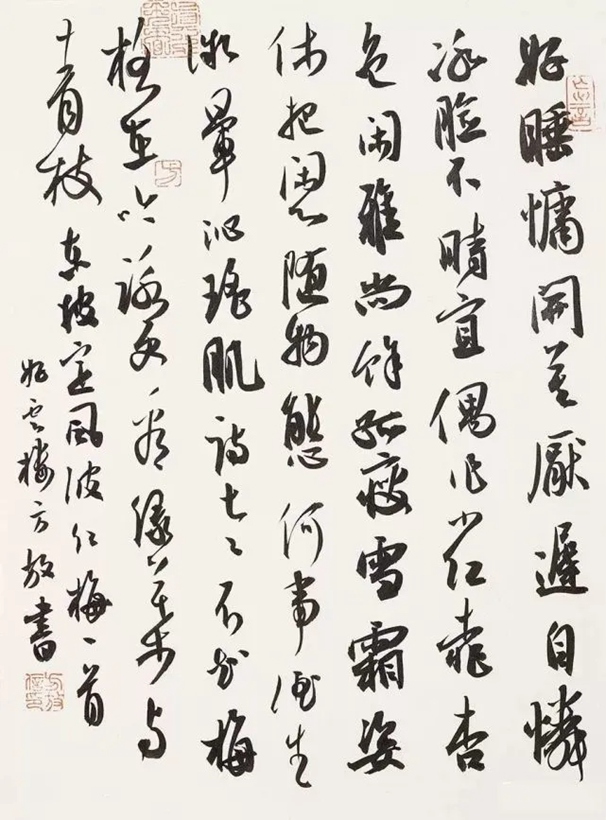 好睡慵開莫厭遲自憐
冰臉不時宜偶作小紅桃杏
色閑雅尚餘孤瘦雪霜姿
休把閑心隨物態何事酒生
微暈沁瑤肌詩老不知梅
格在吟詠更看綠葉与
青枝 東坡定風波紅梅一首
好雲樓方放書